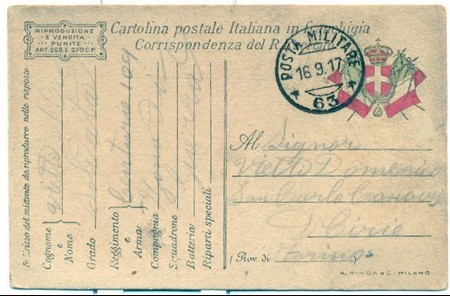 RIPRODUZIONE
E VENDITA
PUNITE
ART. 268 E 270 C.P.
Cartolina postale Italiana in franchigia
Corrispondenza del R.
* POSTA MILITARE *
16.9.17
63
Fr. dizzo del mittente da riprodurre nelle risposte
Cognome
e
Nome
Grado
Reggimento
e
Arma
Centuria 109
Compagnia
Squadrone
Batteria
Riparti speciali
Zona di
Guerra
Al Signor
Vietti Domenico
San Carlo
Cirie
(Prov. di Torino
A. RINDA & C. MILANO